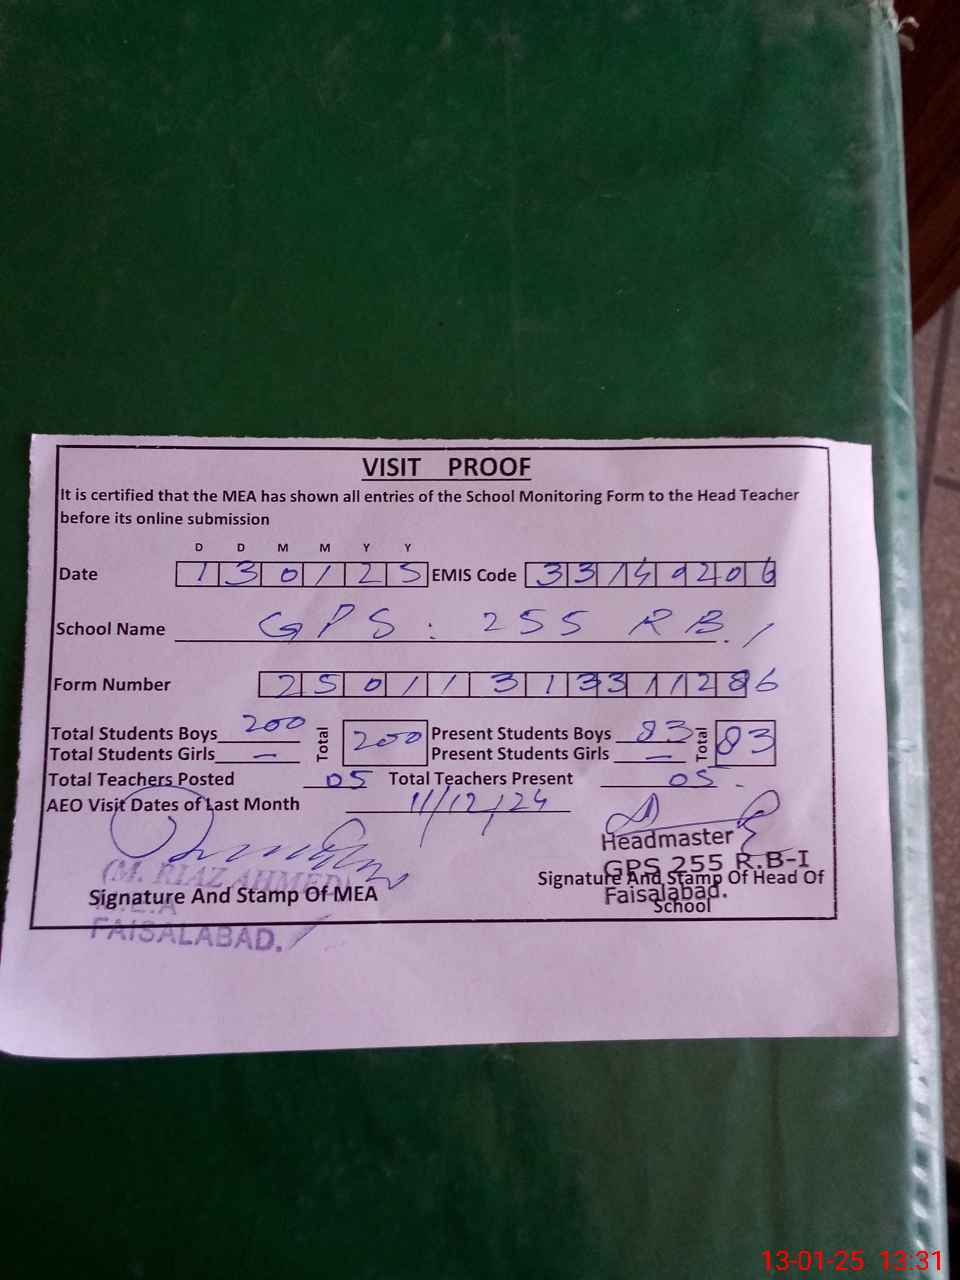 VISIT PROOF
It is certified that the MEA has shown all entries of the School Monitoring Form to the Head Teacher
before its online submission
D D M M Y Y
Date 1 3 0 1 2 5 EMIS Code 3 3 1 4 0 2 0 6
School Name GPS: 255 RB. 1
Form Number
Total Students Boys 200 Total 200 Present Students Boys 83 Total 83
Total Students Girls — Present Students Girls —
Total Teachers Posted 05 Total Teachers Present 05
AEO Visit Dates of Last Month 11/12/24
Headmaster
GPS 255 R.B-I
Faisalabad.
(M. RIAZ AHMED)
M.E.A
FAISALABAD.
Signature And Stamp Of MEA
Signature And Stamp Of Head Of
School
13-01-25 13:31